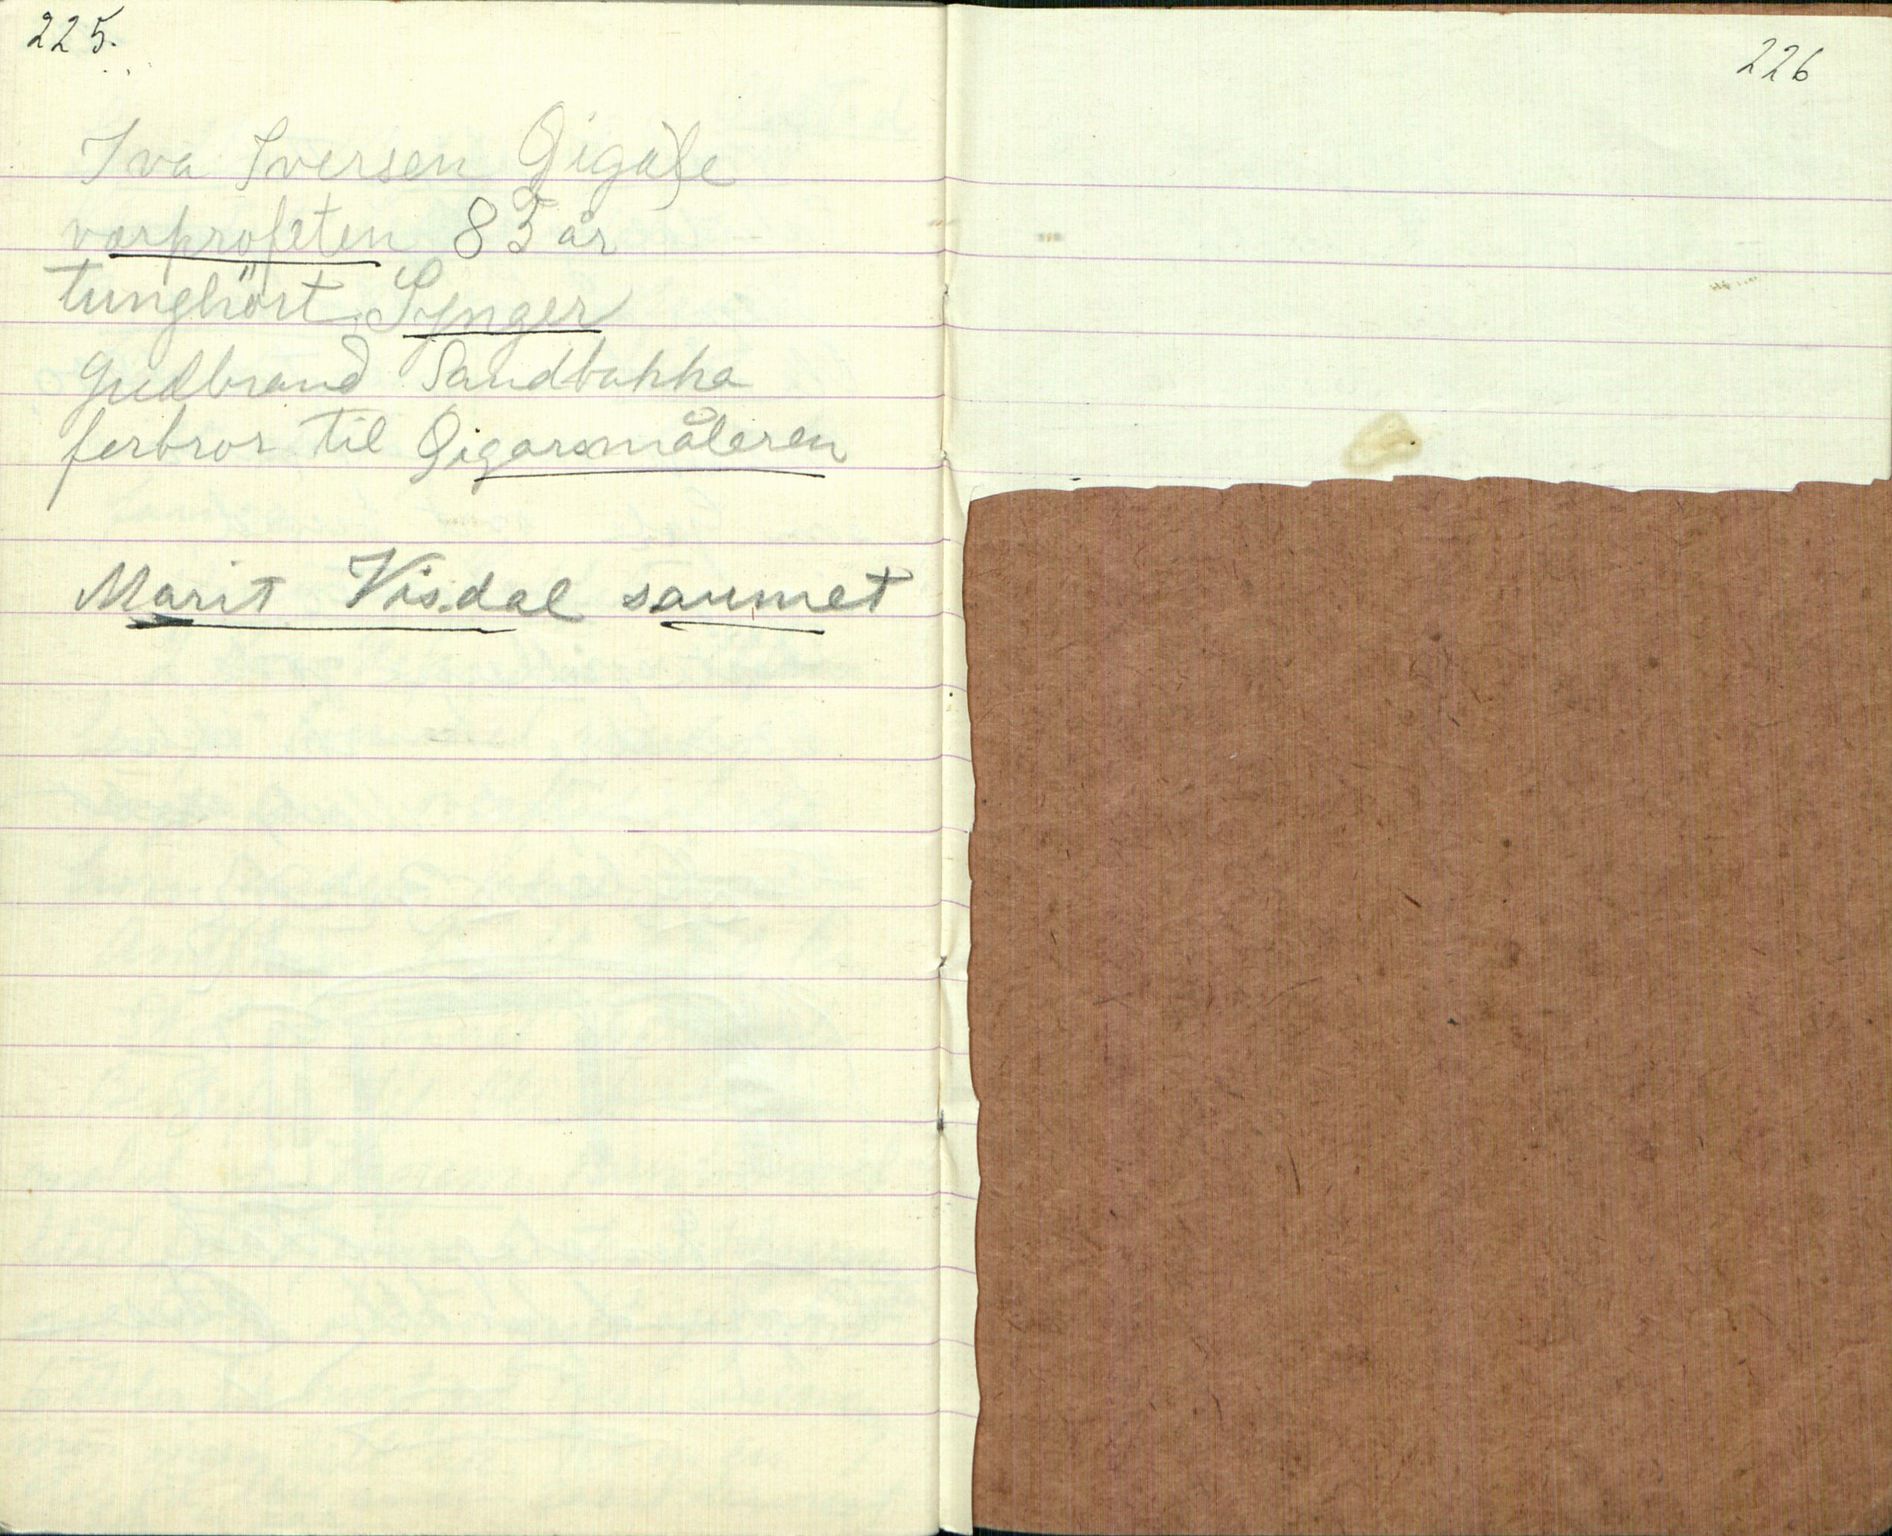 225.
Iva Iversen Gigale
værprofeten 85 år
tunghört Synger
Gudbrand Sandbakka
ferbror til Gigarsmåleren
Marit Visdal saumet
226